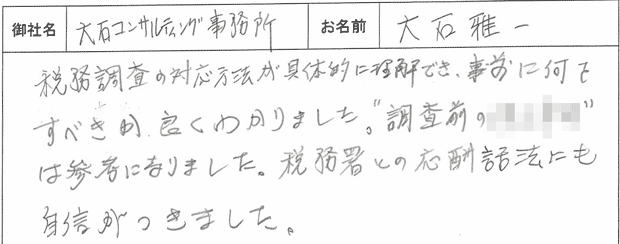 御社名 大石コンサルティング事務所 お名前 大石雅一
税務調査の対応方法が具体的に理解でき、事前に何を
すべきか良くわかりました。"調査前の"
は参考になりました。税務署との応酬話法にも
自信がつきました。